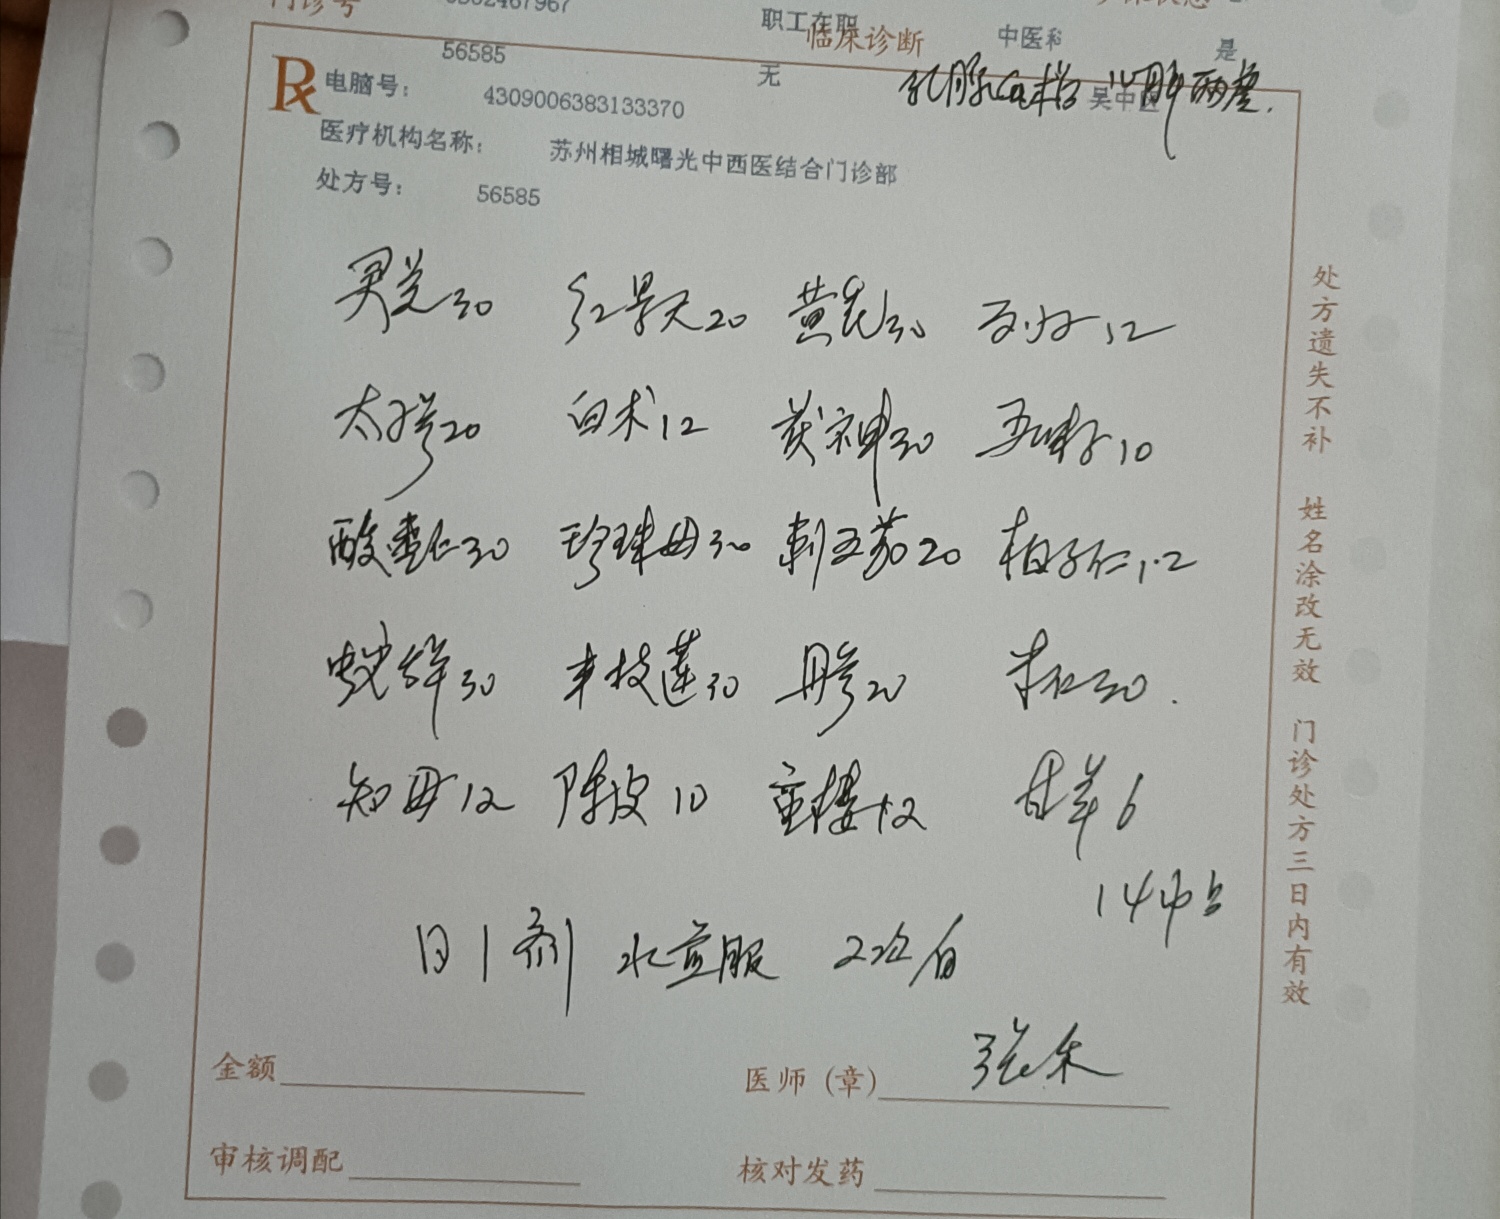 门诊号
职工在职
临床诊断
中医科
是
56585
无
电脑号:
4309006383133370
吴中区
乳腺Ca术后 心脾两虚.
医疗机构名称:
苏州相城曙光中西医结合门诊部
处方号:
56585
灵芝30 红景天20 黄芪30 12
太子参20 白术12 茯神30 五味子10
酸枣仁30 珍珠母30 刺五茄20 柏子仁12
蛇舌草30 半枝莲30 丹参20 米仁30.
知母12 陈皮10 重楼12 甘草6
14帖
日1剂 水煎服 2次/日
金额
医师(章)
审核调配
核对发药
处方遗失不补 姓名涂改无效 门诊处方三日内有效